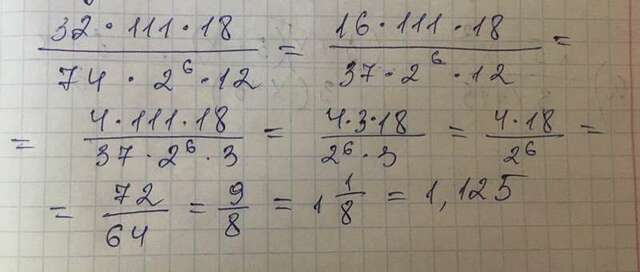 32 · 111 · 18 / 74 · 2⁶ · 12 = 16 · 111 · 18 / 37 · 2⁶ · 12 =
= 4 · 111 · 18 / 37 · 2⁶ · 3 = 4 · 3 · 18 / 2⁶ · 3 = 4 · 18 / 2⁶ =
= 72 / 64 = 9 / 8 = 1 1/8 = 1,125